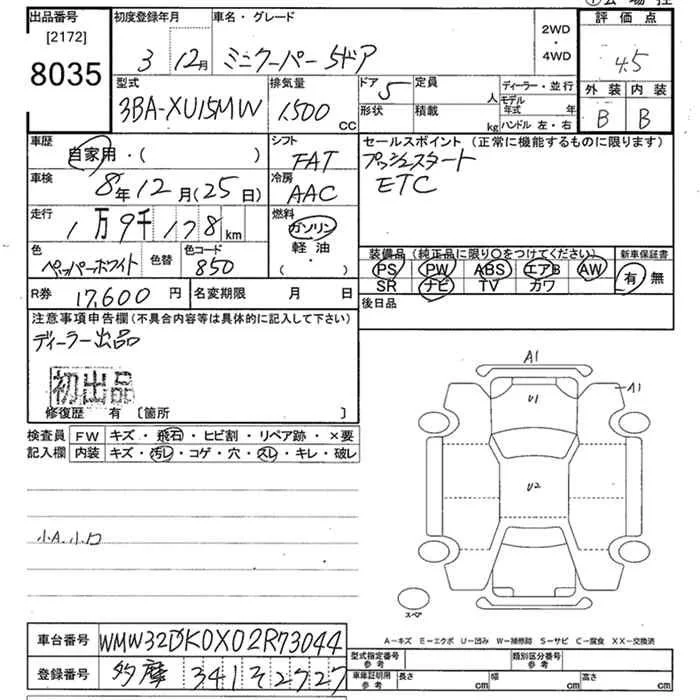 出品番号 初度登録年月 車名・グレード 評価点
[2172] 3 12月 ミニクーパー 5ドア 2WD・4WD 4.5
8035
型式 排気量 ドア 5 定員 人 ディーラー・並行 外装 内装
3BA-XU15MW 1,500 CC 形状 積載 kg モデル年式 年 B B
ハンドル 左・右
車歴 自家用・( ) シフト FAT セールスポイント(正常に機能するものに限ります)
プッシュスタート
ETC
車検 8年12月(25日) 冷房 AAC
走行 1万9千178km 燃料 ガソリン 軽油 ・( )
色 ペッパーホワイト 色替 色コード 850
装備品(純正品に限り〇をつけてください) 新車保証書
PS PW ABS エアB AW 有・無
SR ナビ TV カワ
R券 17,600円 名変期限 月 日 後日品
注意事項申告欄(不具合内容等は具体的に記入して下さい)
ディーラー出品
初出品
修復歴 有 [箇所 ]
検査員 FW キズ・飛石・ヒビ割・リペア跡・×要
記入欄 内装 キズ・汚レ・コゲ・穴・スレ・キレ・破レ
A1
A1
U1
U2
小A.小ロ
スペア
A-キズ E-エクボ U-凹み W-補修跡 S-サビ C-腐食 XX-交換済
車台番号 WMW32DK0X02R73044
登録番号 多摩 341 そ 2727
型式指定番号 参考 類別区分番号 参考
車庫証明用 参考 長さ cm 幅 cm 高さ cm